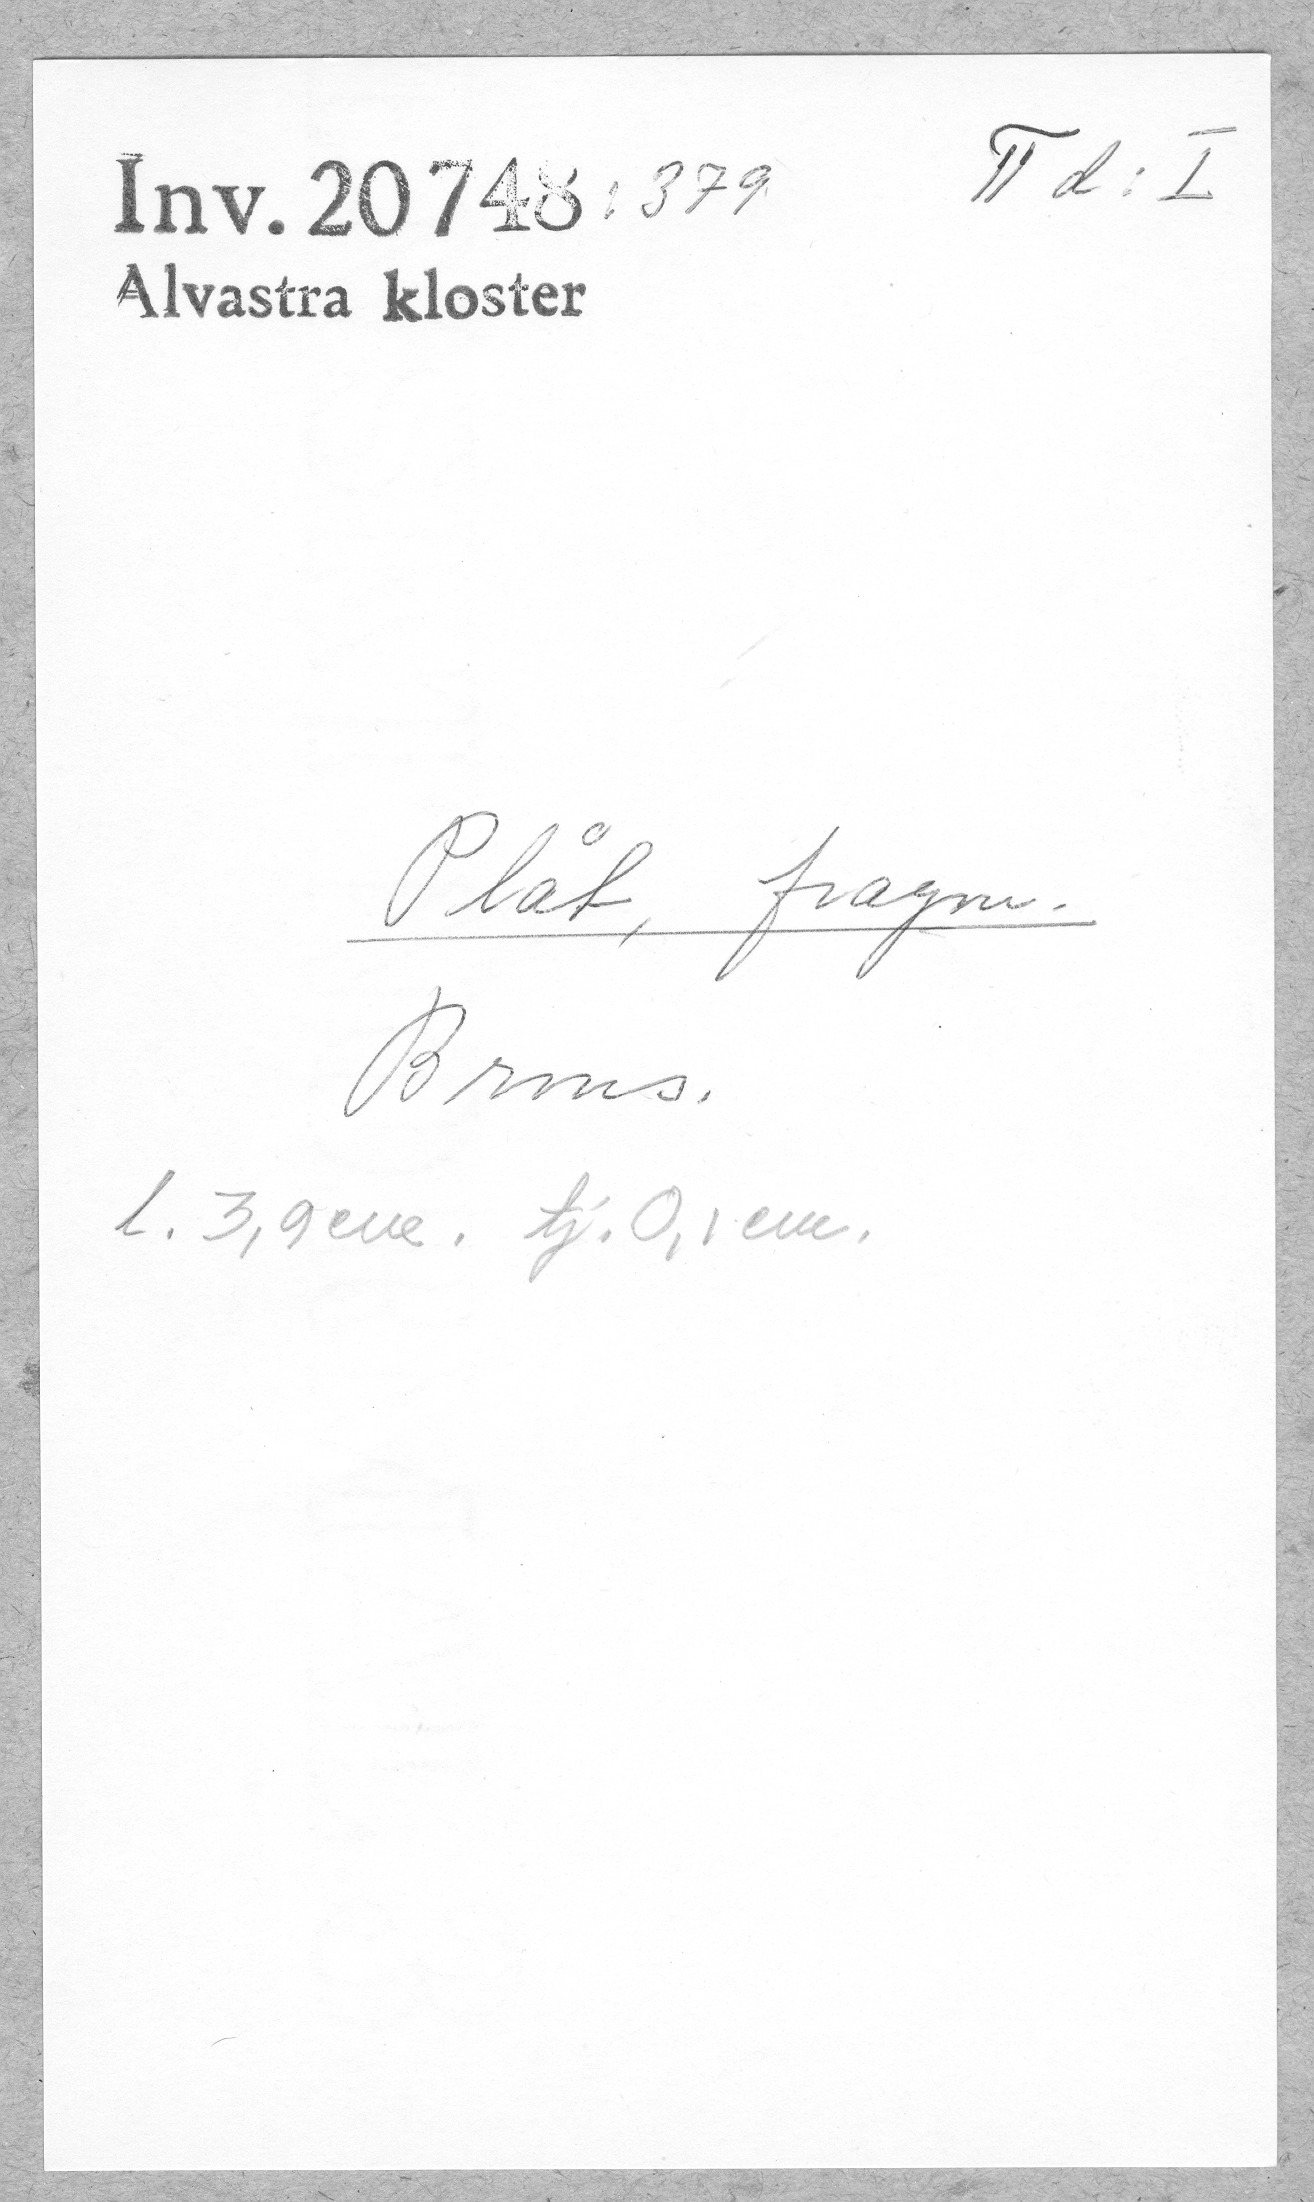 Inv. 20748:379 II d: I
Alvastra kloster
Plåt, fragm.
Brons.
l. 3,9 cm. tj. 0,1 cm.